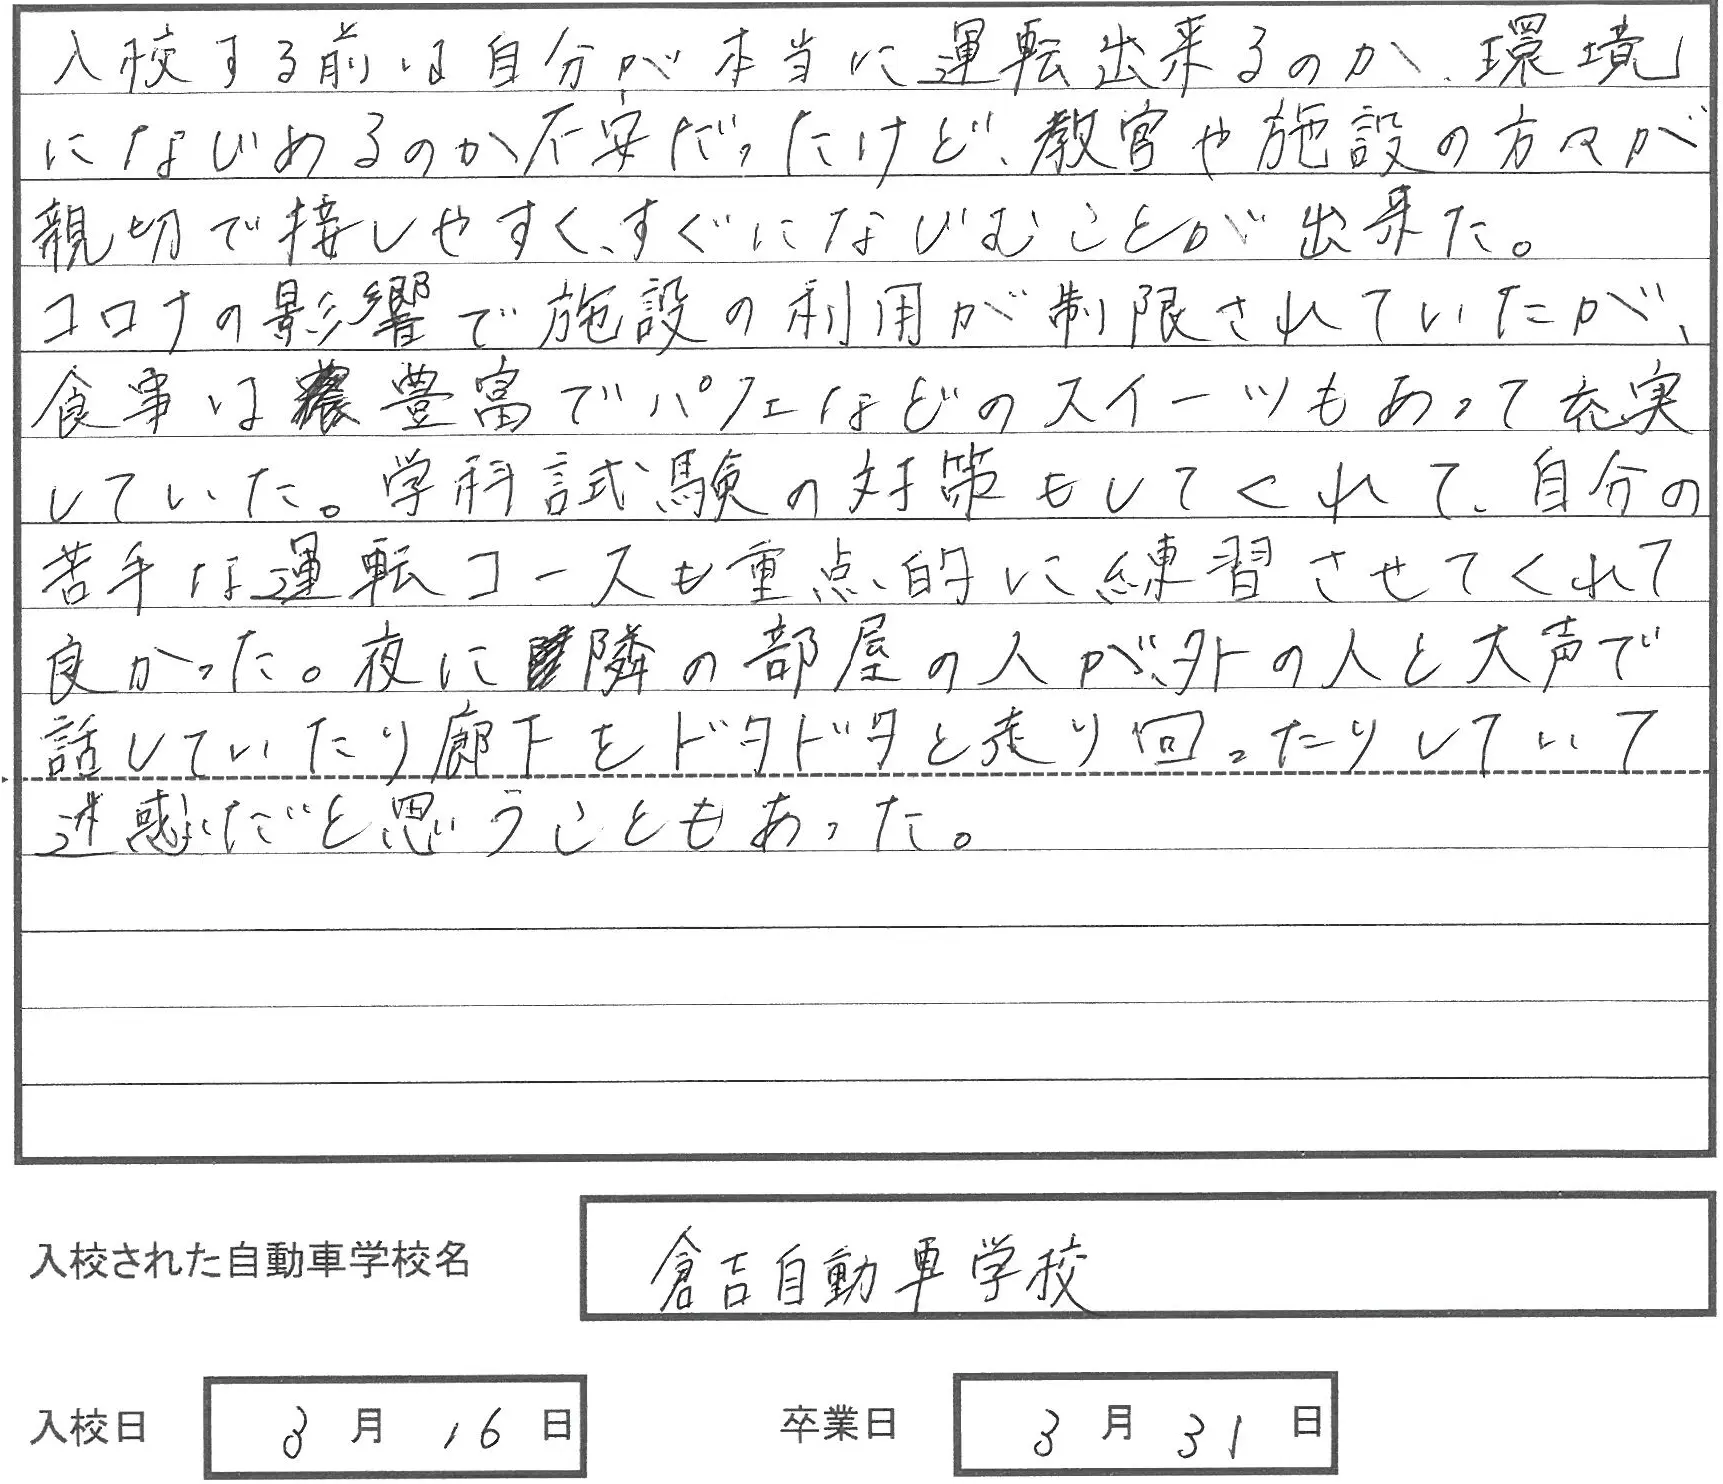 入校する前は自分が本当に運転出来るのか、環境
になじめるのか不安だったけど、教官や施設の方々が
親切で接しやすく、すぐになじむことが出来た。
コロナの影響で施設の利用が制限されていたが、
食事は豊富でパフェなどのスイーツもあって充実
していた。学科試験の対策もしてくれて、自分の
苦手な運転コースも重点的に練習させてくれて
良かった。夜に隣の部屋の人が、外の人と大声で
話していたり廊下をドタドタと走り回ったりしていて
迷惑だと思うこともあった。
入校された自動車学校名 倉吉自動車学校
入校日 3月16日 卒業日 3月31日